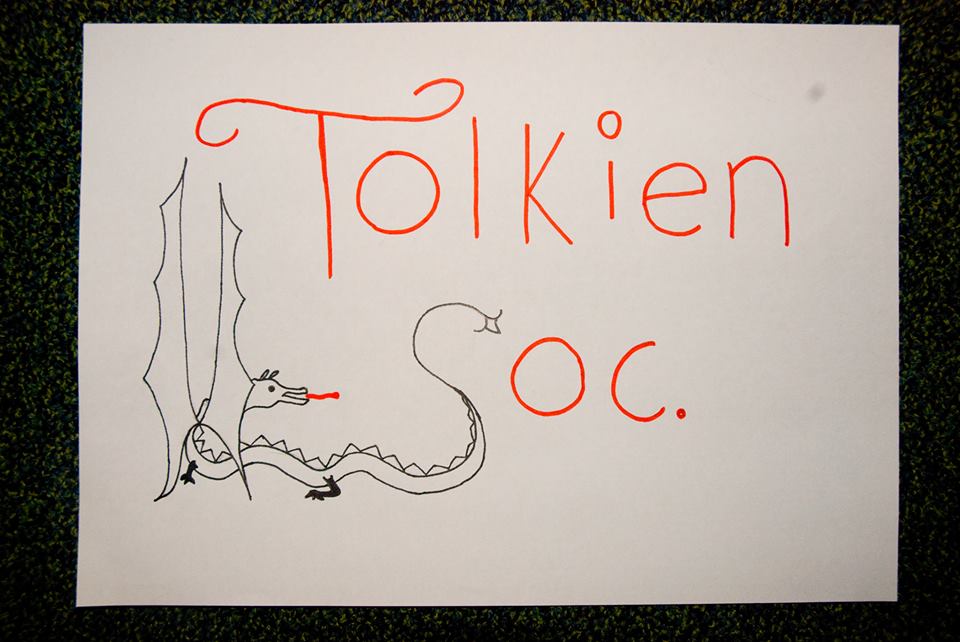 Tolkien
Soc.